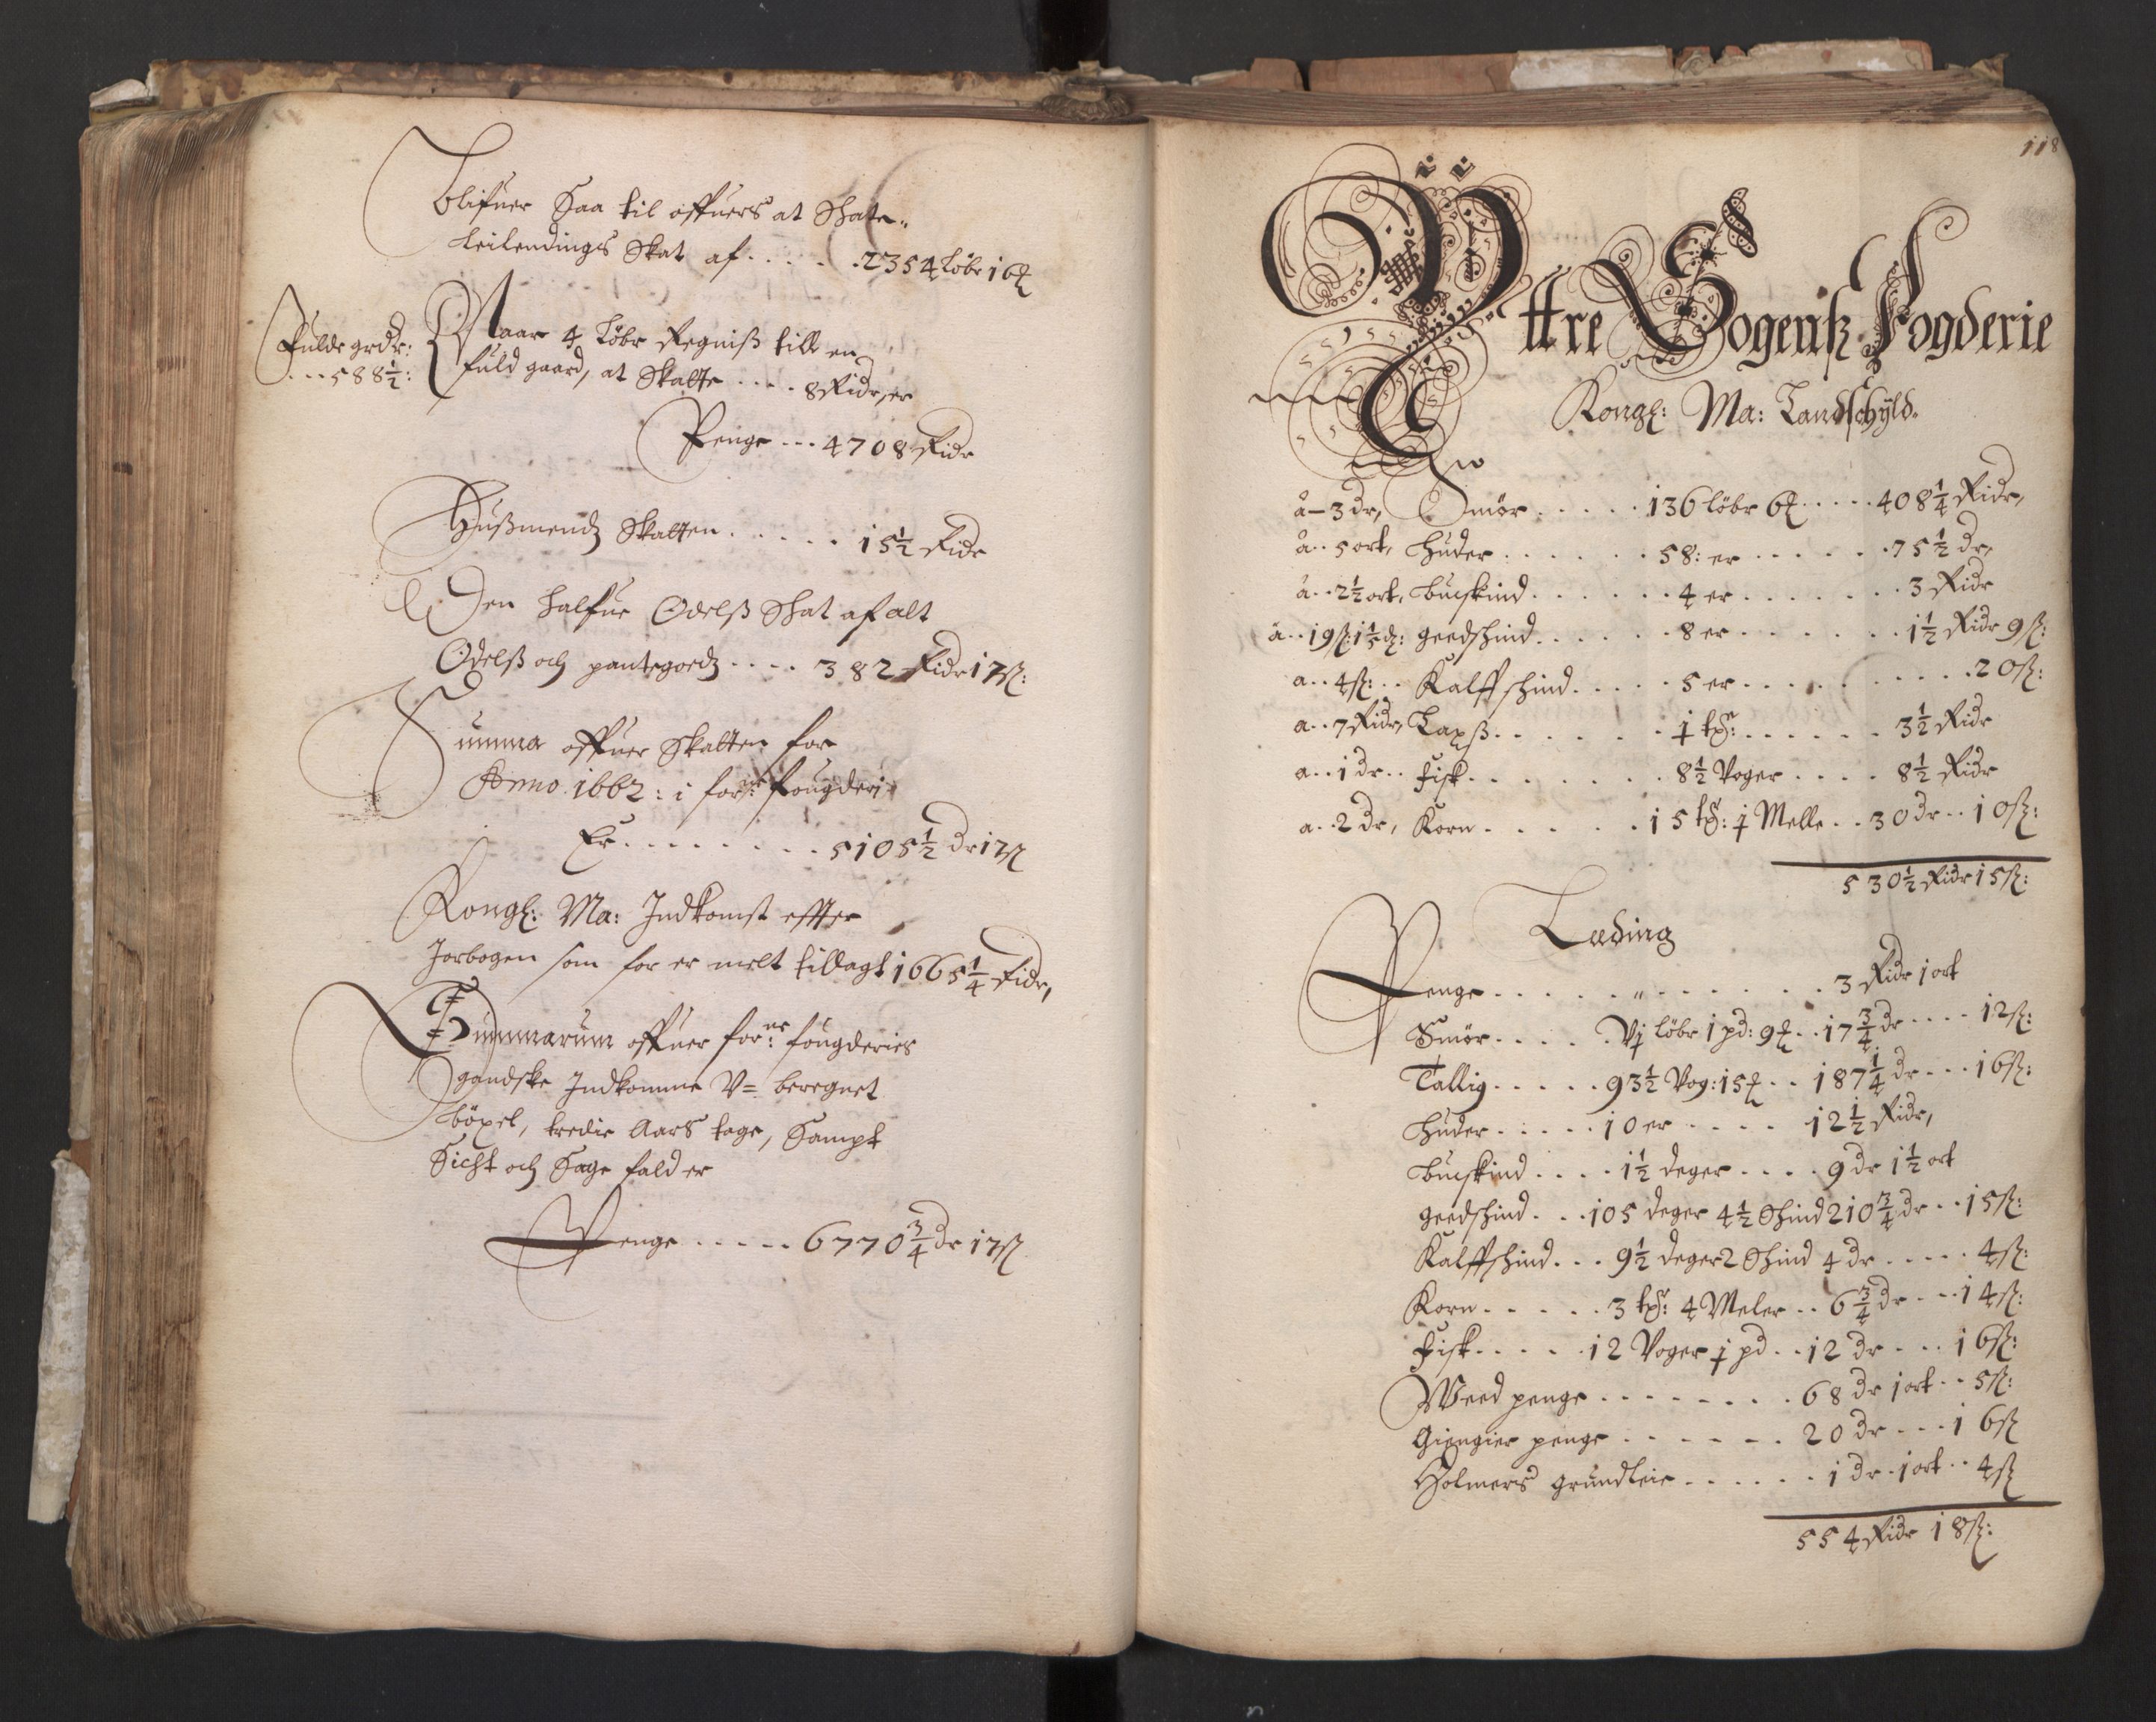 Blifuer Saa til offuers at Skate..
Leilendings Skat af . . . . . 2354 Löbr 16 ℔
Fulde grdr:
. . . 588½:
Naar 4 Löbr Regniß till en
fuld gaard, at Skatte . . . . 8 Ridr, er
Penge . . . 4708 Ridr
Hußmendz Skatten . . . . . 15½ Ridr
Den halfue Odelß Skat af alt
Odelß och pantegoedz . . . . 382 Ridr 17 ß:
Summa offuer Skatten for
Anno 1662: i for:ne fougderi
Er . . . . . . . . 5105½ dr 17 ß
Kongl: Ma: Indkomst effter
Jorbogen som for er melt tillagt 1665¼ Ridr,
Summarum offuer for:ne fougderies
gandske Indkomme V= beregnet
böxel, tredie Aars tage, Sampt
Sicht och Sage fald er
Penge . . . . . 6770¾ dr 17 ß
118
Yttre Sogenß Fogderie
Kongl: Ma: Landschyld.
å – 3 dr, Smör . . . . . 136 löbr 6 ℔ . . . . . 408¼ Ridr,
å . . 5 ort, Huder . . . . . . 58: er . . . . . . 75½ dr,
a . . 2½ ort, Buckskind . . . . . . 4 er . . . . . . . 3 Ridr
å . . 19 ß: 1⅕ ₰: geedskind . . . . . 8 er . . . . . . . 1½ Ridr 9 ß:
a . . 4 ß: . . Kalffskind . . . . . 5 er . . . . . . . . . . 20 ß:
a . . 7 Ridr, Laxß . . . . . . . ɉ tgr: . . . . . . 3½ Ridr
a . . 1 dr . . Fisk . . . . . . . . 8½ Voger . . . . 8½ Ridr
a . . 2 dr, Korn . . . . . . 15 tgr: ɉ Melle . . 30 dr . . 10 ß:
530½ Ridr 15 ß:
Leding
Penge . . . . . . „ . . . . . . . 3 Ridr 1 ort
Smör . . . . . Vɉ löbr 1 pd: 9 ℔ . . 17¾ dr . . . . 12 ß:
Tallig . . . . . 93½ Vog: 15 ℔ . . 187¼ dr . . . 16 ß:
Huder . . . . . 10 er . . . . . 12½ Ridr,
Buckskind . . . . 1½ deger . . . . 9 dr 1½ ort
geedskind . . . 105 deger 4½ Skind 210¾ dr . . 15 ß:
Kalffskind . . . 9½ deger 2 Skind 4 dr . . . . . 4 ß:
Korn . . . . . . 3 tgr: 4 Meler . . 6¾ dr . . . 14 ß:
Fisk . . . . . 12 Voger ɉ pd . . 12 dr . . . 16 ß:
Weed penge . . . . . . . . 68 dr 1 ort . . 5 ß:
Giengier penge . . . . . . 20 dr . . . 16 ß
Holmers grundleie . . . . . . 1 dr . 1 ort . . 4 ß
554 Ridr 18 ß: